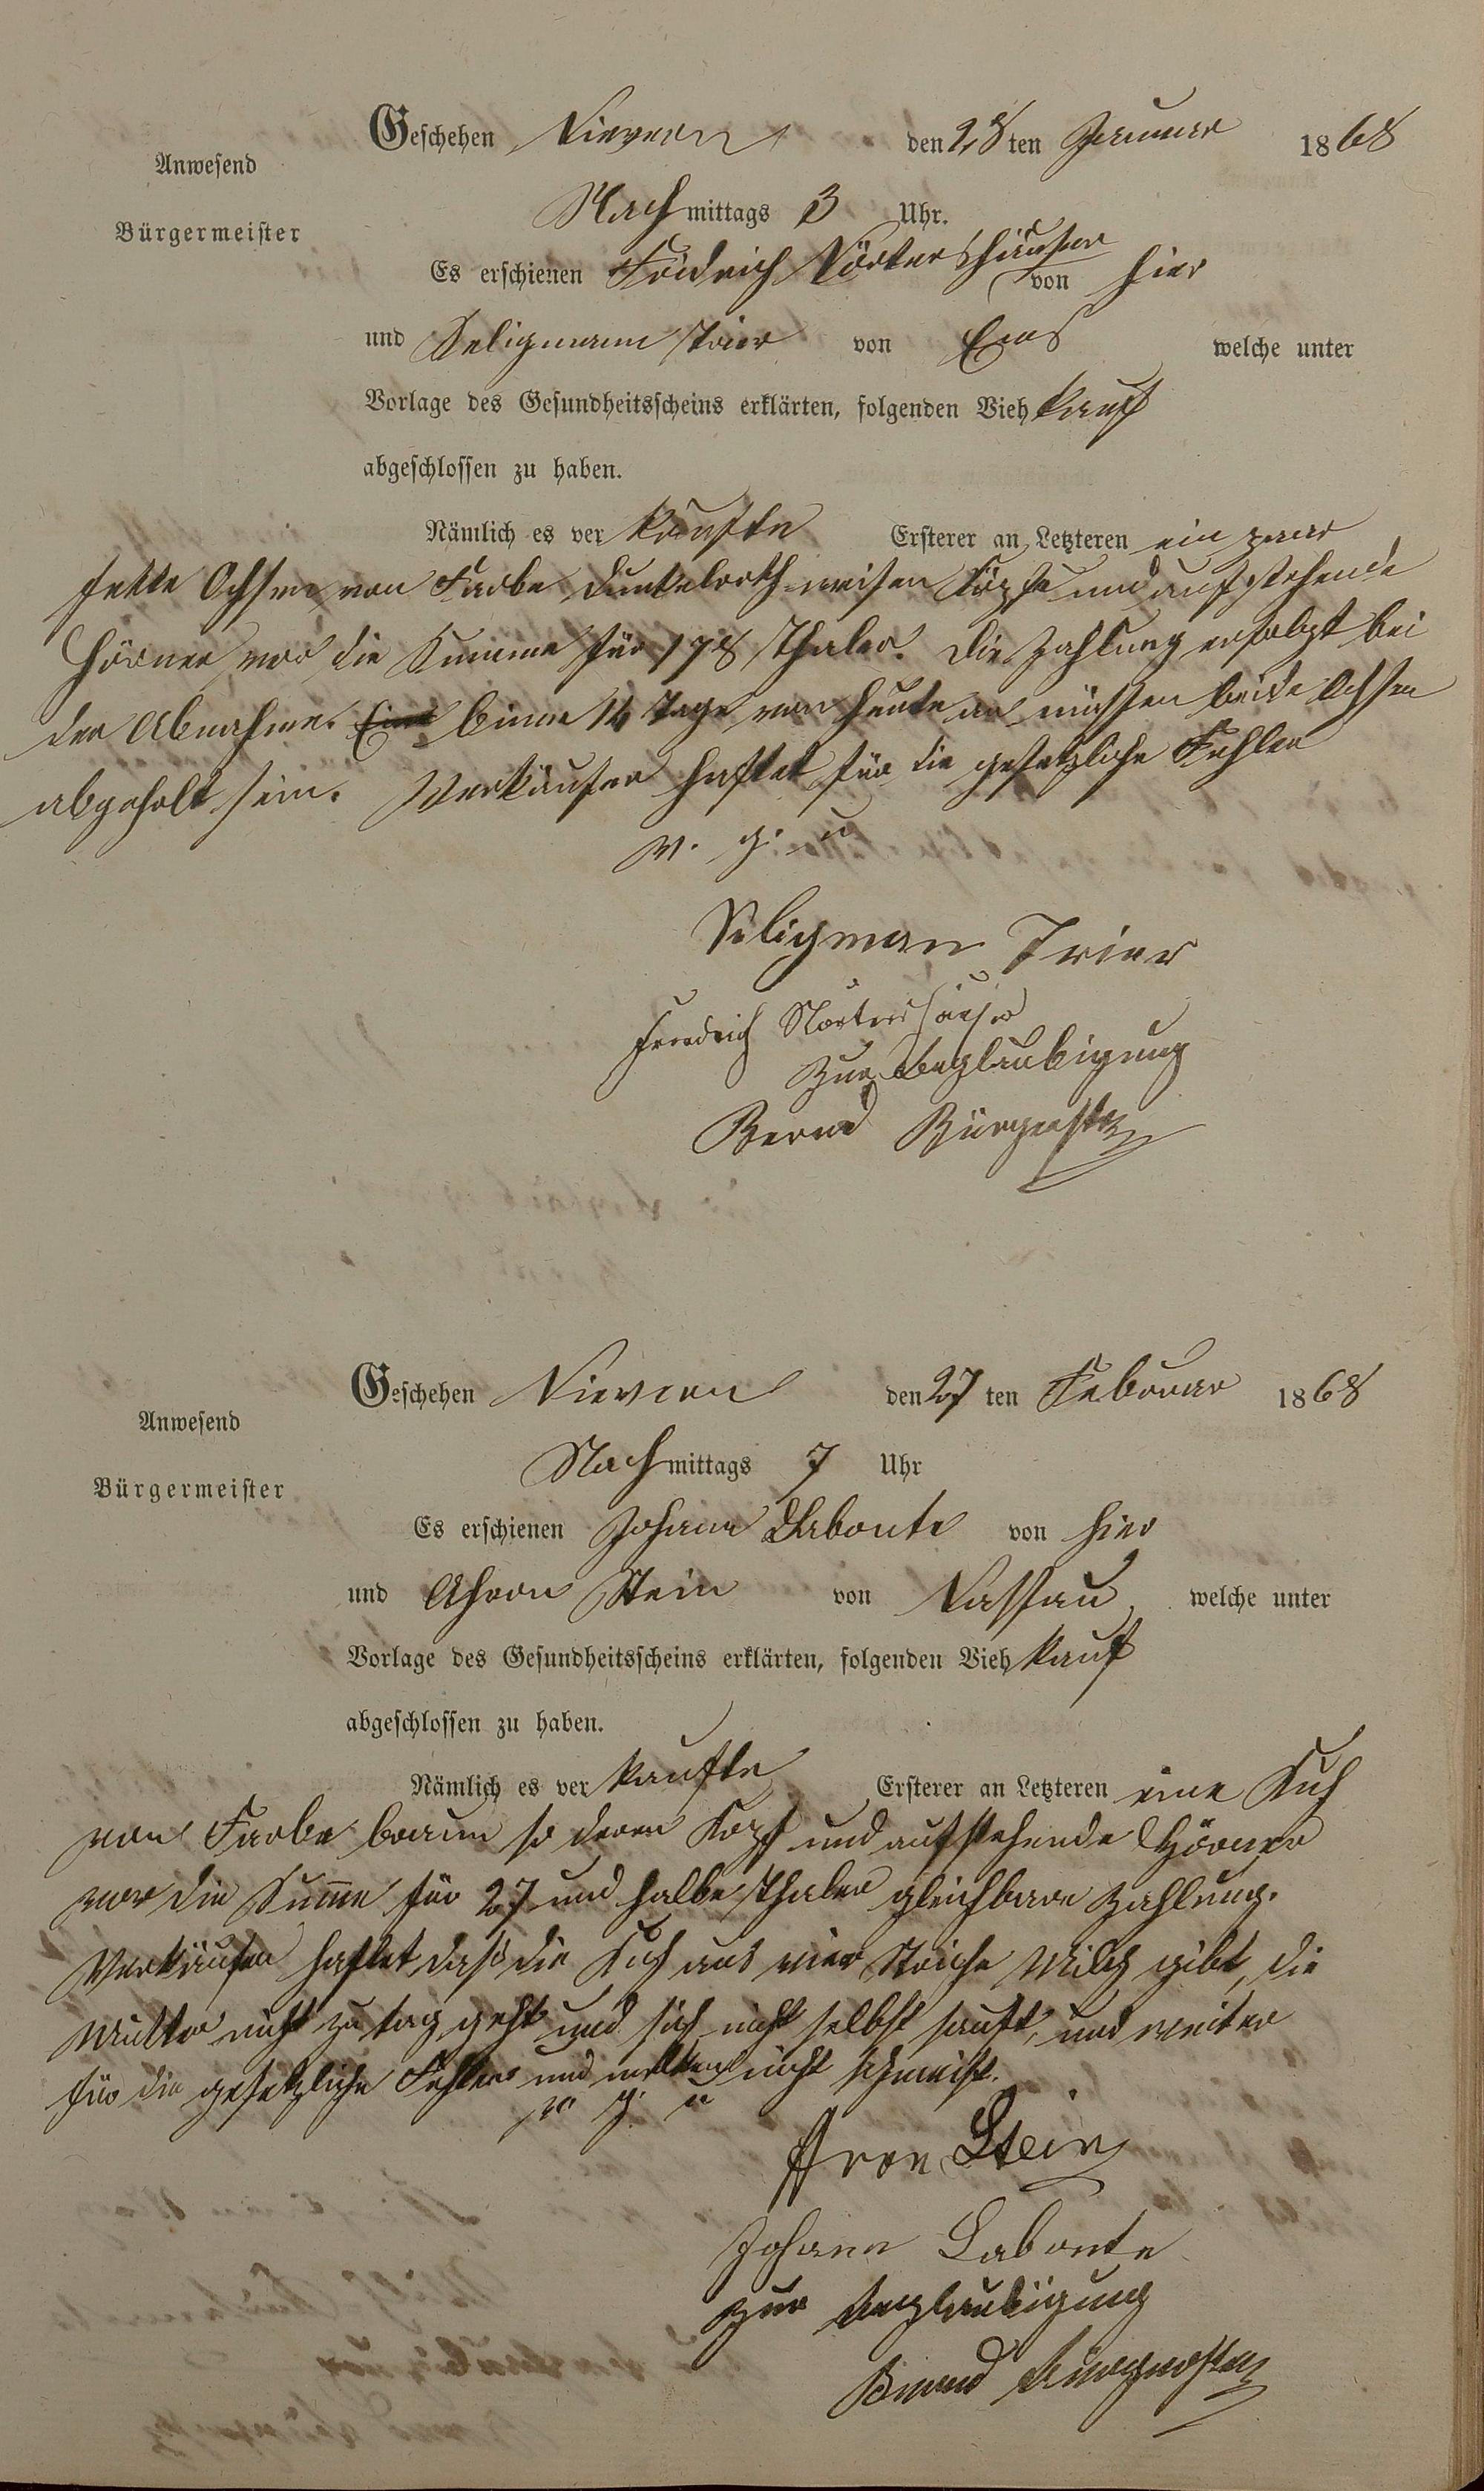 Geschehen Nievern den 28 ten Januar 1868
Anwesend
Bürgermeister
Nachmittags 3 Uhr.
Es erschienen Friedrich Nörtershäuser von hier
und Seligmann Trier von Ems welche unter
Vorlage des Gesundheitsscheins erklärten, folgenden Viehkauf
abgeschlossen zu haben.
Nämlich es verkaufte Ersterer an Letzteren ein paar
fette Ochsen von Farbe dunkelroth weisen Köpfe und aufstehende
Hörner vor die Summe für 178 Thaler. Die Zahlung erfolgt bei
der Abnahme. Eine binne 14 Tage von heute an müssen beide Ochsen
abgeholt sein. Verkäufer haftet für die gesetzliche Fehler
v. g. u
Seligman Trier
Friedrich Nörtershäuser
Zur Beglaubigung
Bürgerstr
Geschehen Nievern den 27 ten Februar 1868
Anwesend
Bürgermeister
Nachmittags 7 Uhr
Es erschienen Johann Labonte von hier
und Ahron Stein von Nassau welche unter
Vorlage des Gesundheitsscheins erklärten, folgenden Viehkauf
abgeschlossen zu haben.
Nämlich es verkaufte Ersterer an Letzteren eine Kuh
von Farbe braun so deren Kopf und aufstehende Hörner
vor die Summe für 27 und halbe Thaler gleichbare Zahlung.
Verkäufer haftet daß die Kuh aus vier Striche Milch gibt, die
Mutter nicht zu tag geht und sich nicht selbst sauft, und weiter
für die gesetzliche Fehler und melken nicht schmeist.
v g. u
Aron Stein
Johann Labonte
Zur Beglaubigung
Bürgerstr